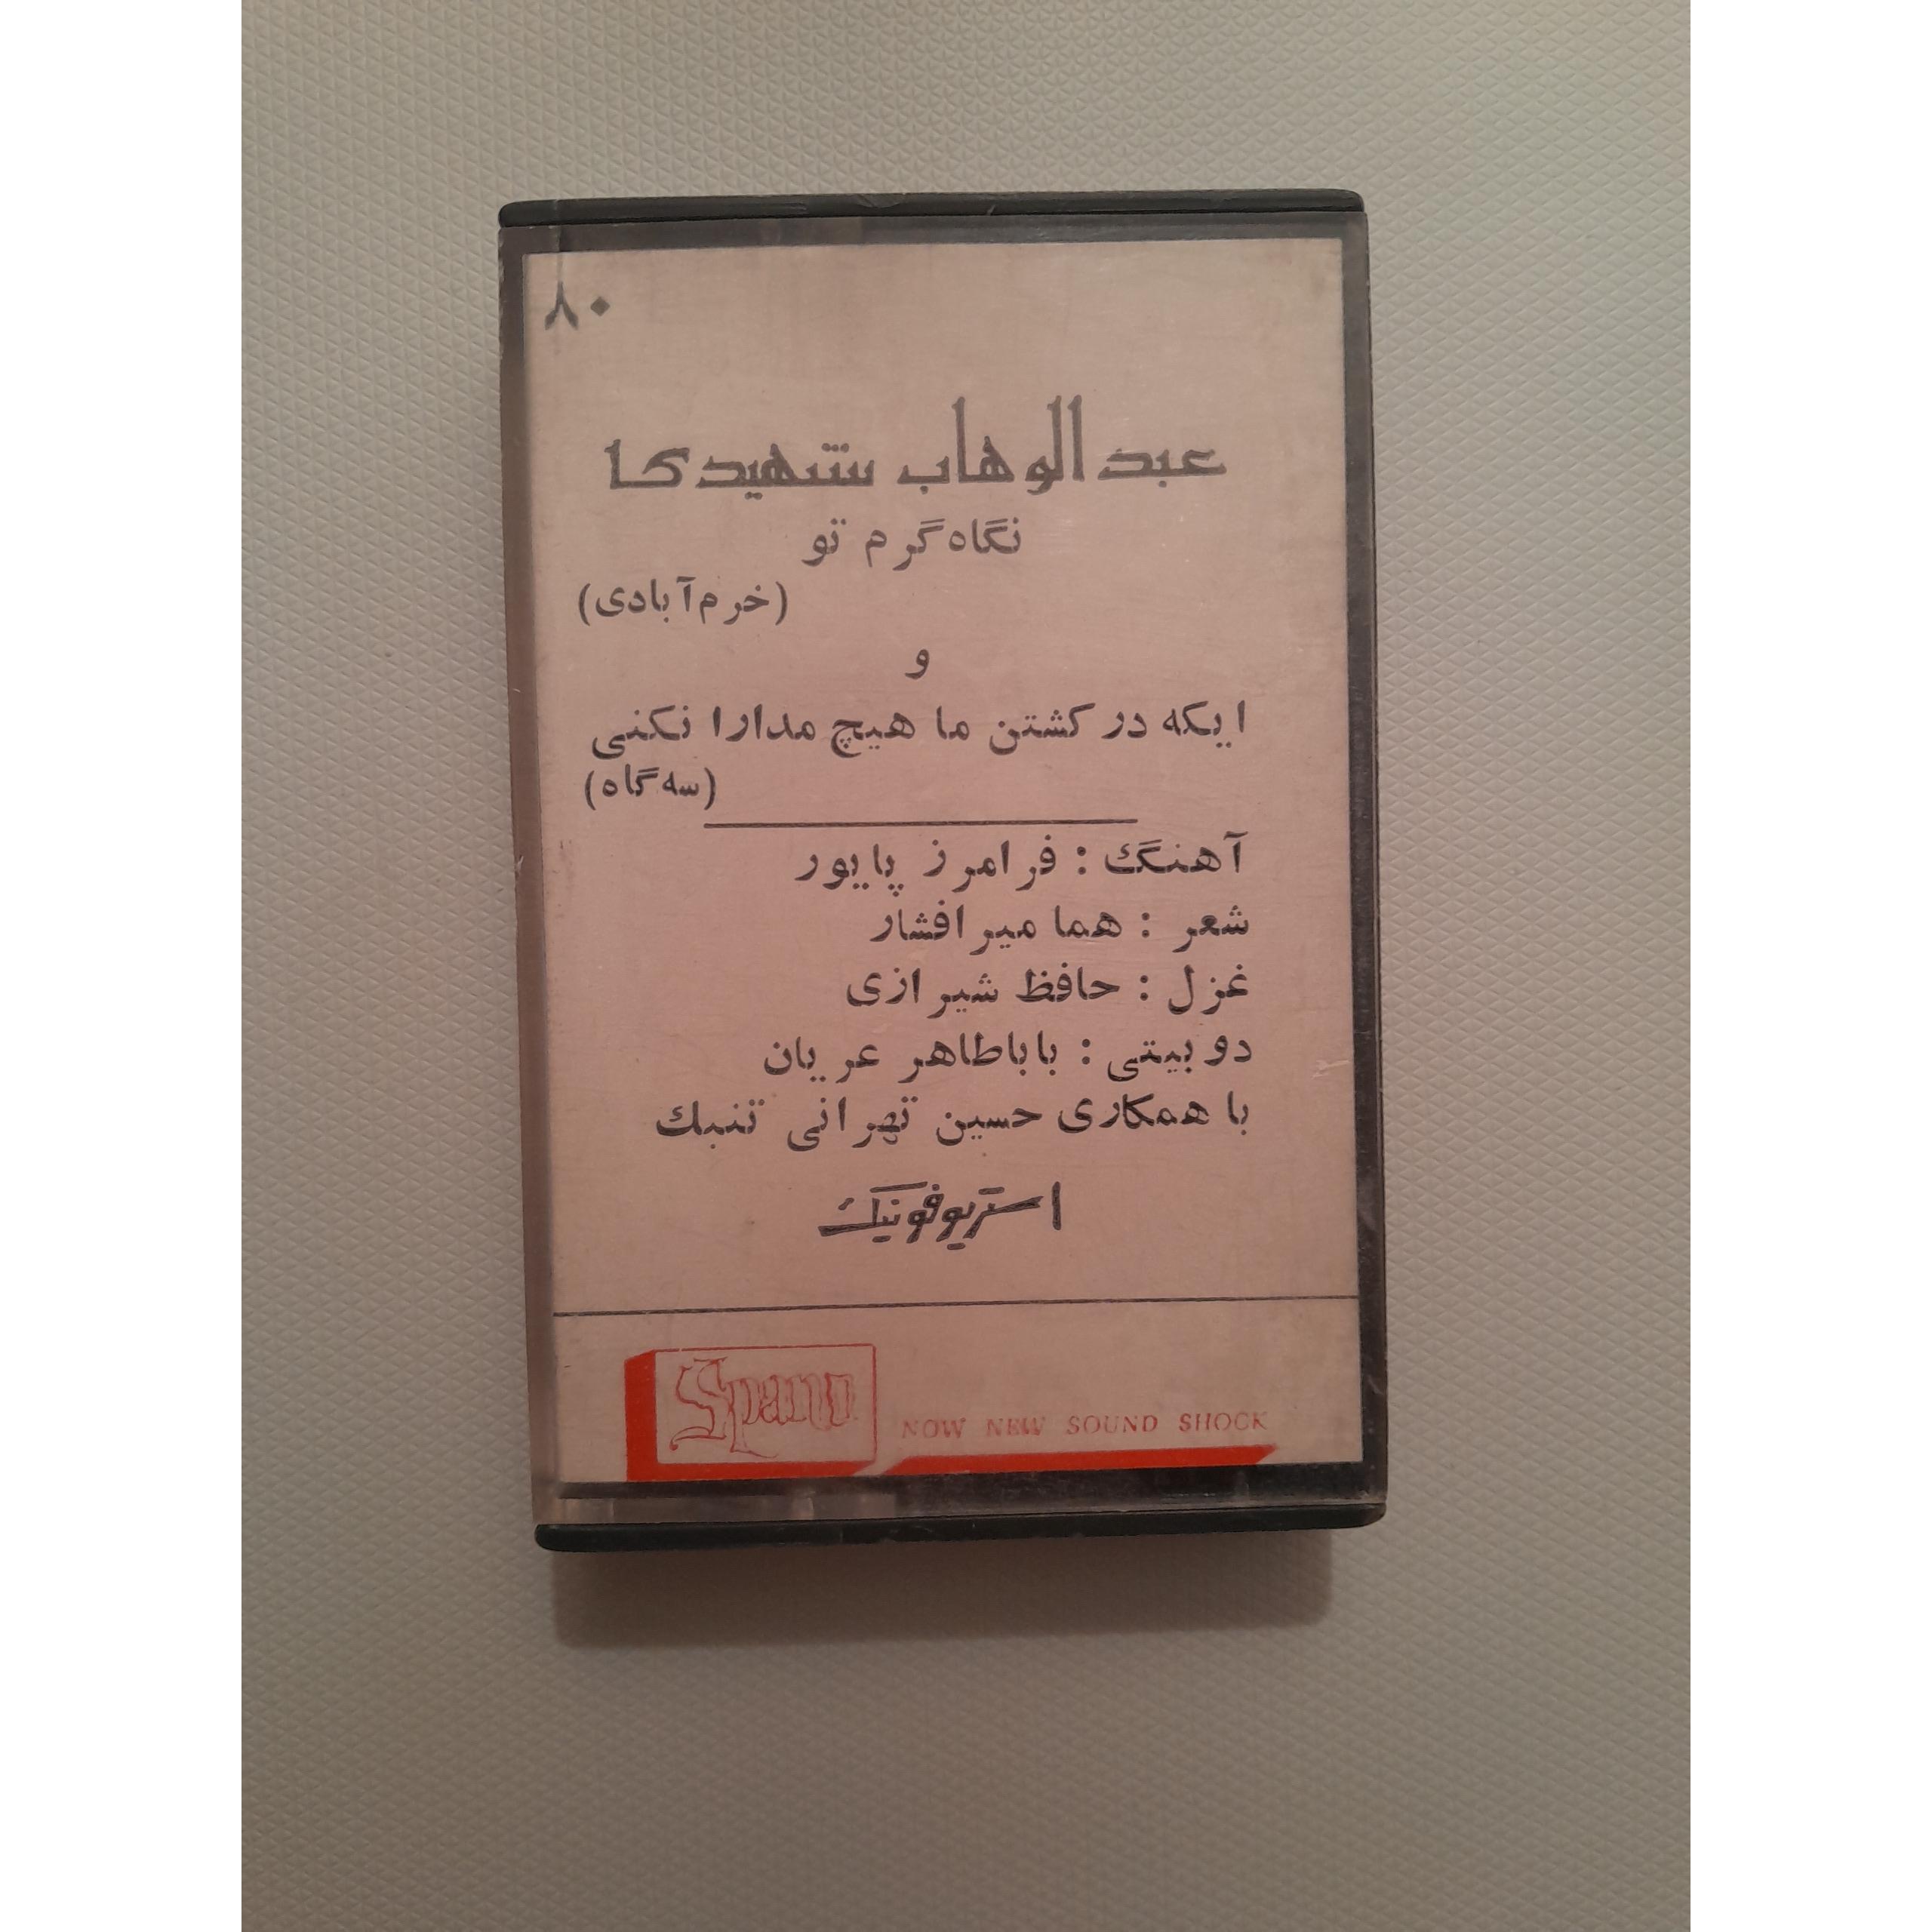 ۸۰
عبدالوهاب شهیدی
نگاه گرم تو
(خرم‌آبادی)
و
ایکه در کشتن ما هیچ مدارا نکنی
(سه‌گاه)
آهنگ : فرامرز پایور
شعر : هما میرافشار
غزل : حافظ شیرازی
دوبیتی : باباطاهر عریان
با همکاری حسین تهرانی تنبک
استریوفونیک
Spano
NOW NEW SOUND SHOCK